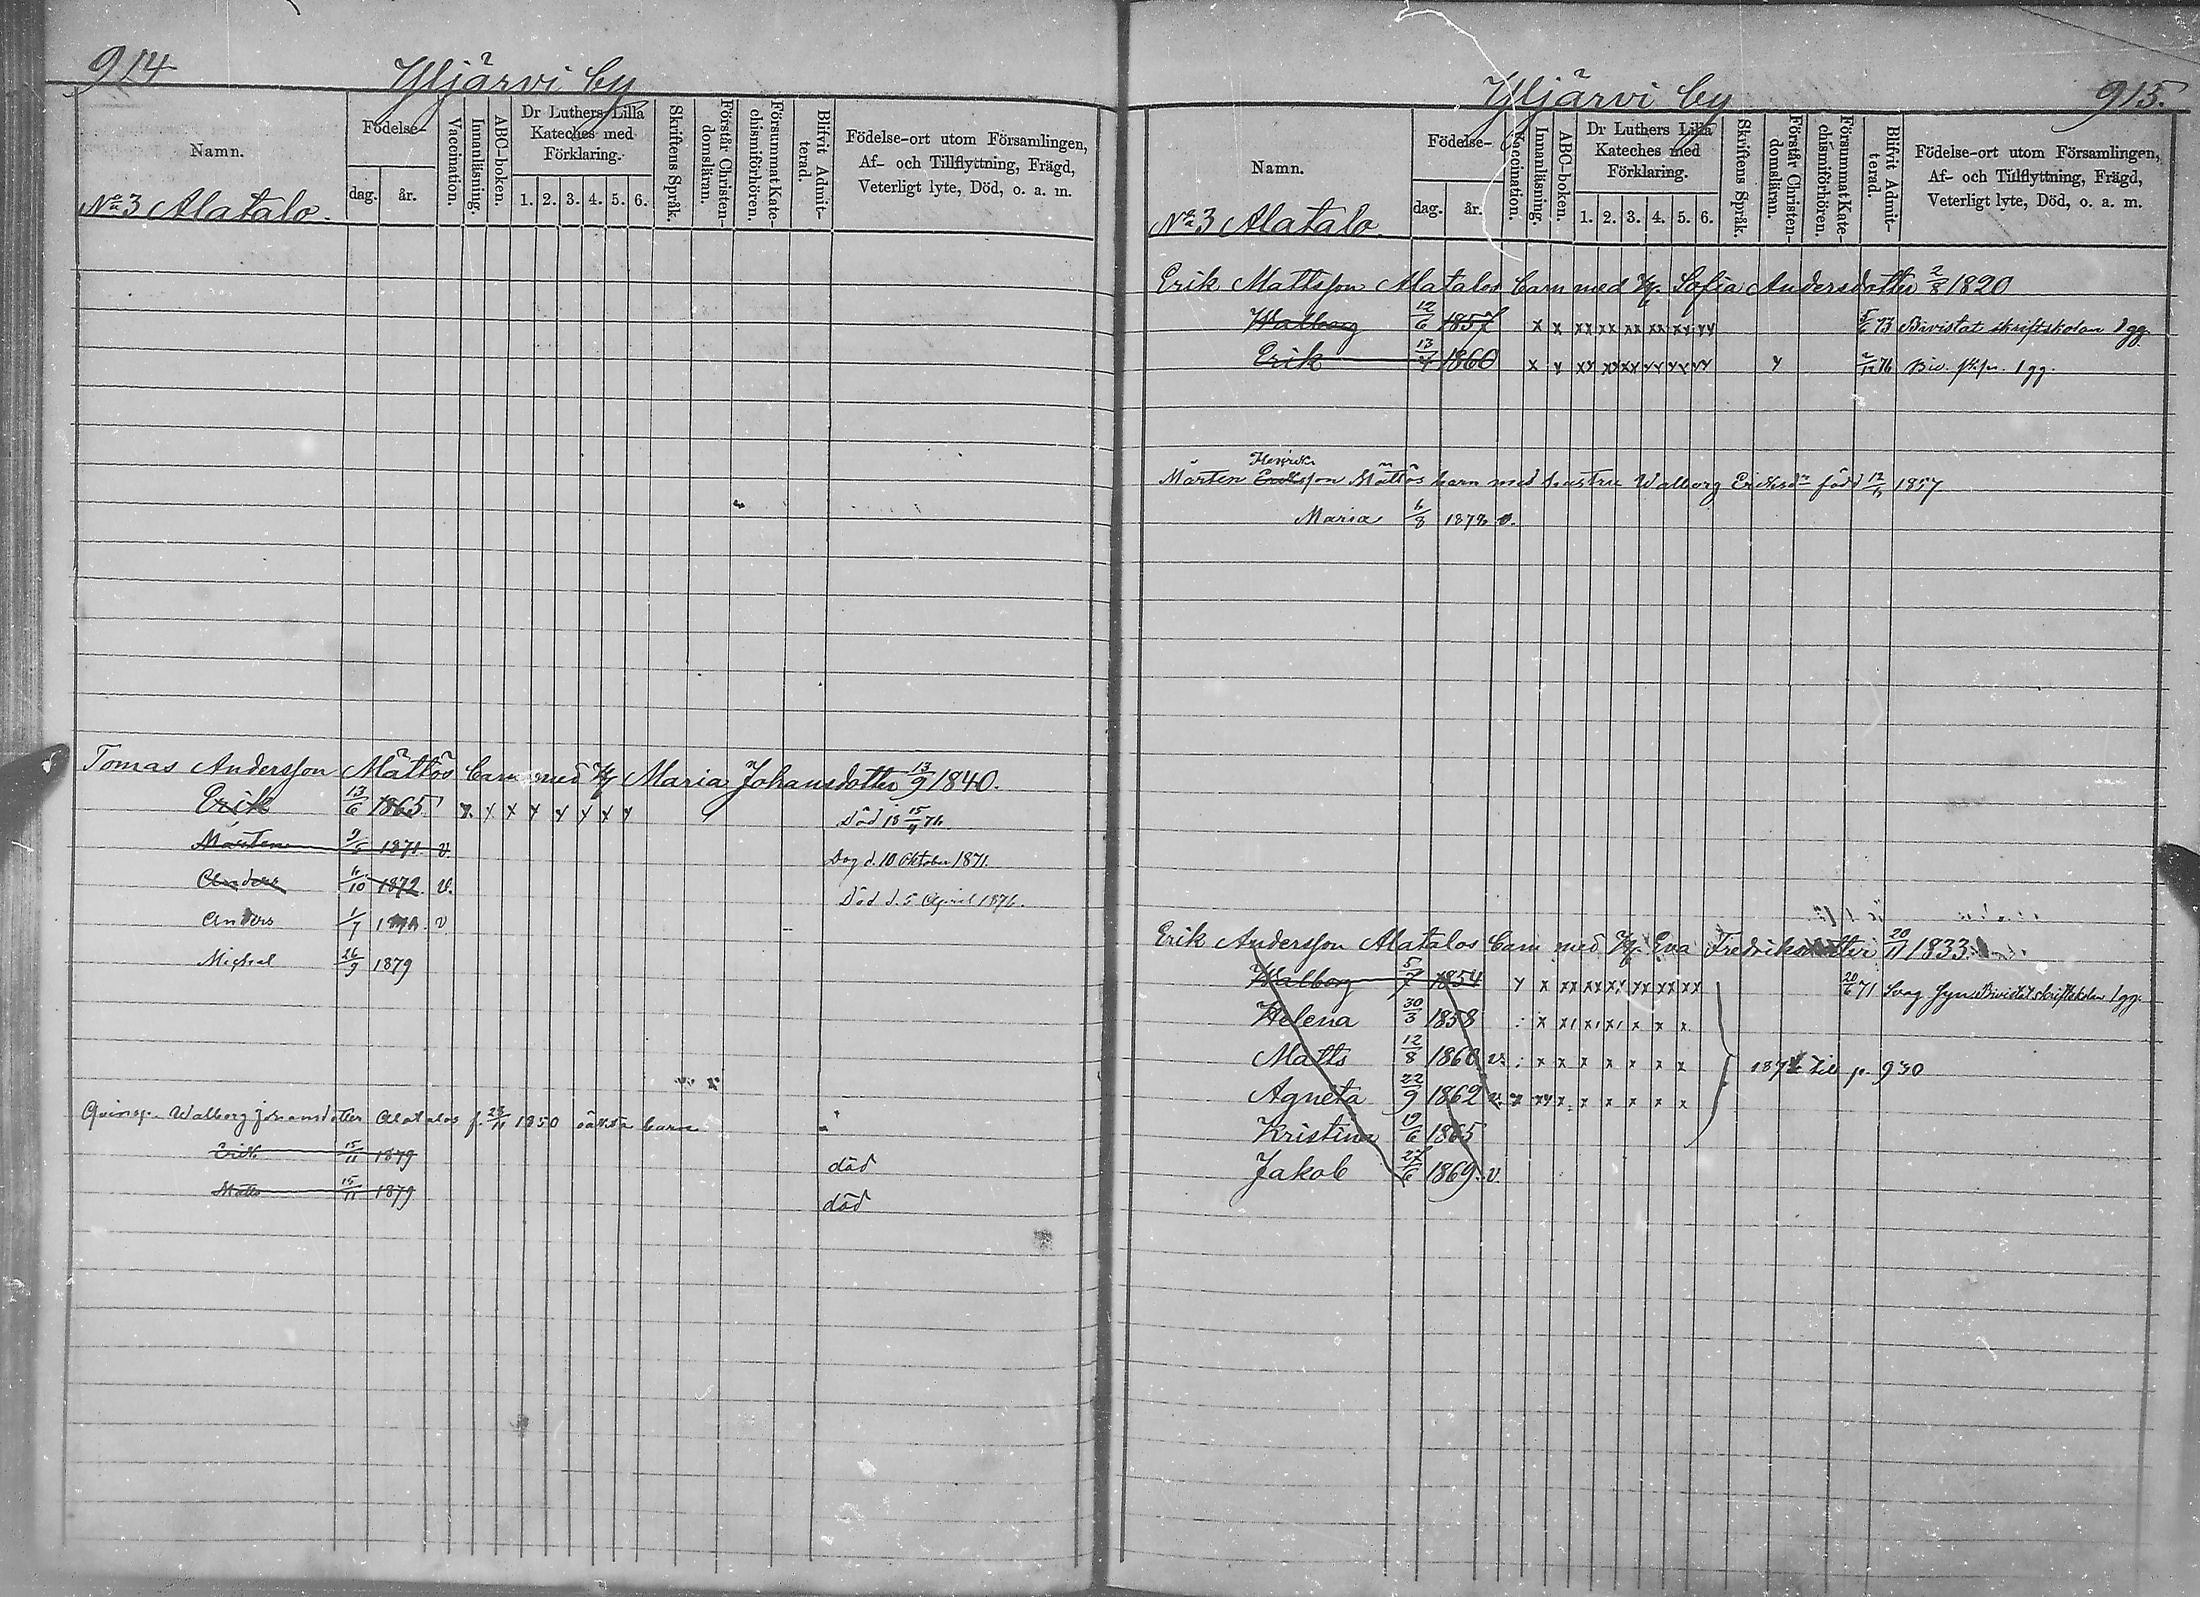 914
Yljärvi by
Namn.
Födelse-
dag. år.
Vaccination.
Innanläsning.
ABC-boken.
Dr Luthers Lilla Kateches med Förklaring.
1. 2. 3. 4. 5. 6.
Skriftens Språk.
Förstår Christen-domsläran.
Försummat Kate-chismiförhören.
Blifvit Admit-terad.
Födelse-ort utom Församlingen,
Af- och Tillflyttning, Frägd,
Veterligt lyte, Död, o. a. m.
No 3 Alatalo.
Tomas Andersson Mättös barn med H. Maria Johansdotter 13/9 1840.
Erik 13/6 1865 x y x x y y x y Död 18 15/4 76.
Mårten 9/6 1871 v. Dog d. 10 Oktober 1871.
Anders 6/10 1872 v. Död d. 5 April 1876.
Anders 1/7 v
Michael 26/9 1879
Qvinsp. Walborg Johansdotter Alatalos f. 23/11 1850 oäkta barn
Erik 15/11 1879 död
Matts 15/11 1879 död
Yljärvi by
915.
Namn.
Födelse-
dag. år.
Vaccination.
Innanläsning.
ABC-boken.
Dr Luthers Lilla Kateches med Förklaring.
1. 2. 3. 4. 5. 6.
Skriftens Språk.
Förstår Christen-domsläran.
Försummat Kate-chismiförhören.
Blifvit Admit-terad.
Födelse-ort utom Församlingen,
Af- och Tillflyttning, Frägd,
Veterligt lyte, Död, o. a. m.
No 3 Alatalo.
Erik Mattsson Alatalos barn med H. Sofia Andersdotter 2/8 1820
Walborg 12/6 1857 x x xx xx xx xx xx yy 5/6 73 Bivistat skriftskolan 1 gg.
Erik 13/4 1860 x v xx xx xx xx xx xx y 2/12 76 Biv. 1 gg.
Henriks
Mårten Eriksson Mättös barn med hustru Walborg Eriksdr född 12/6 1857
Maria 6/8 1878 v.
Erik Andersson Alatalos barn med H. Eva Fredriksdotter 20/11 1833
Walborg 5/7 1854 y x xx xx xx xx xx xx 20/6 71 Svag syn Bivistat skriftskolan 1 gg.
Helena 30/3 1858 x x x x x x x
Matts 12/8 1860 v. x x x x x x x
Agneta 22/9 1862 v. x xx x x x x x x
till p. 930
Kristina 19/6 1865
Jakob 27/6 1869 v.